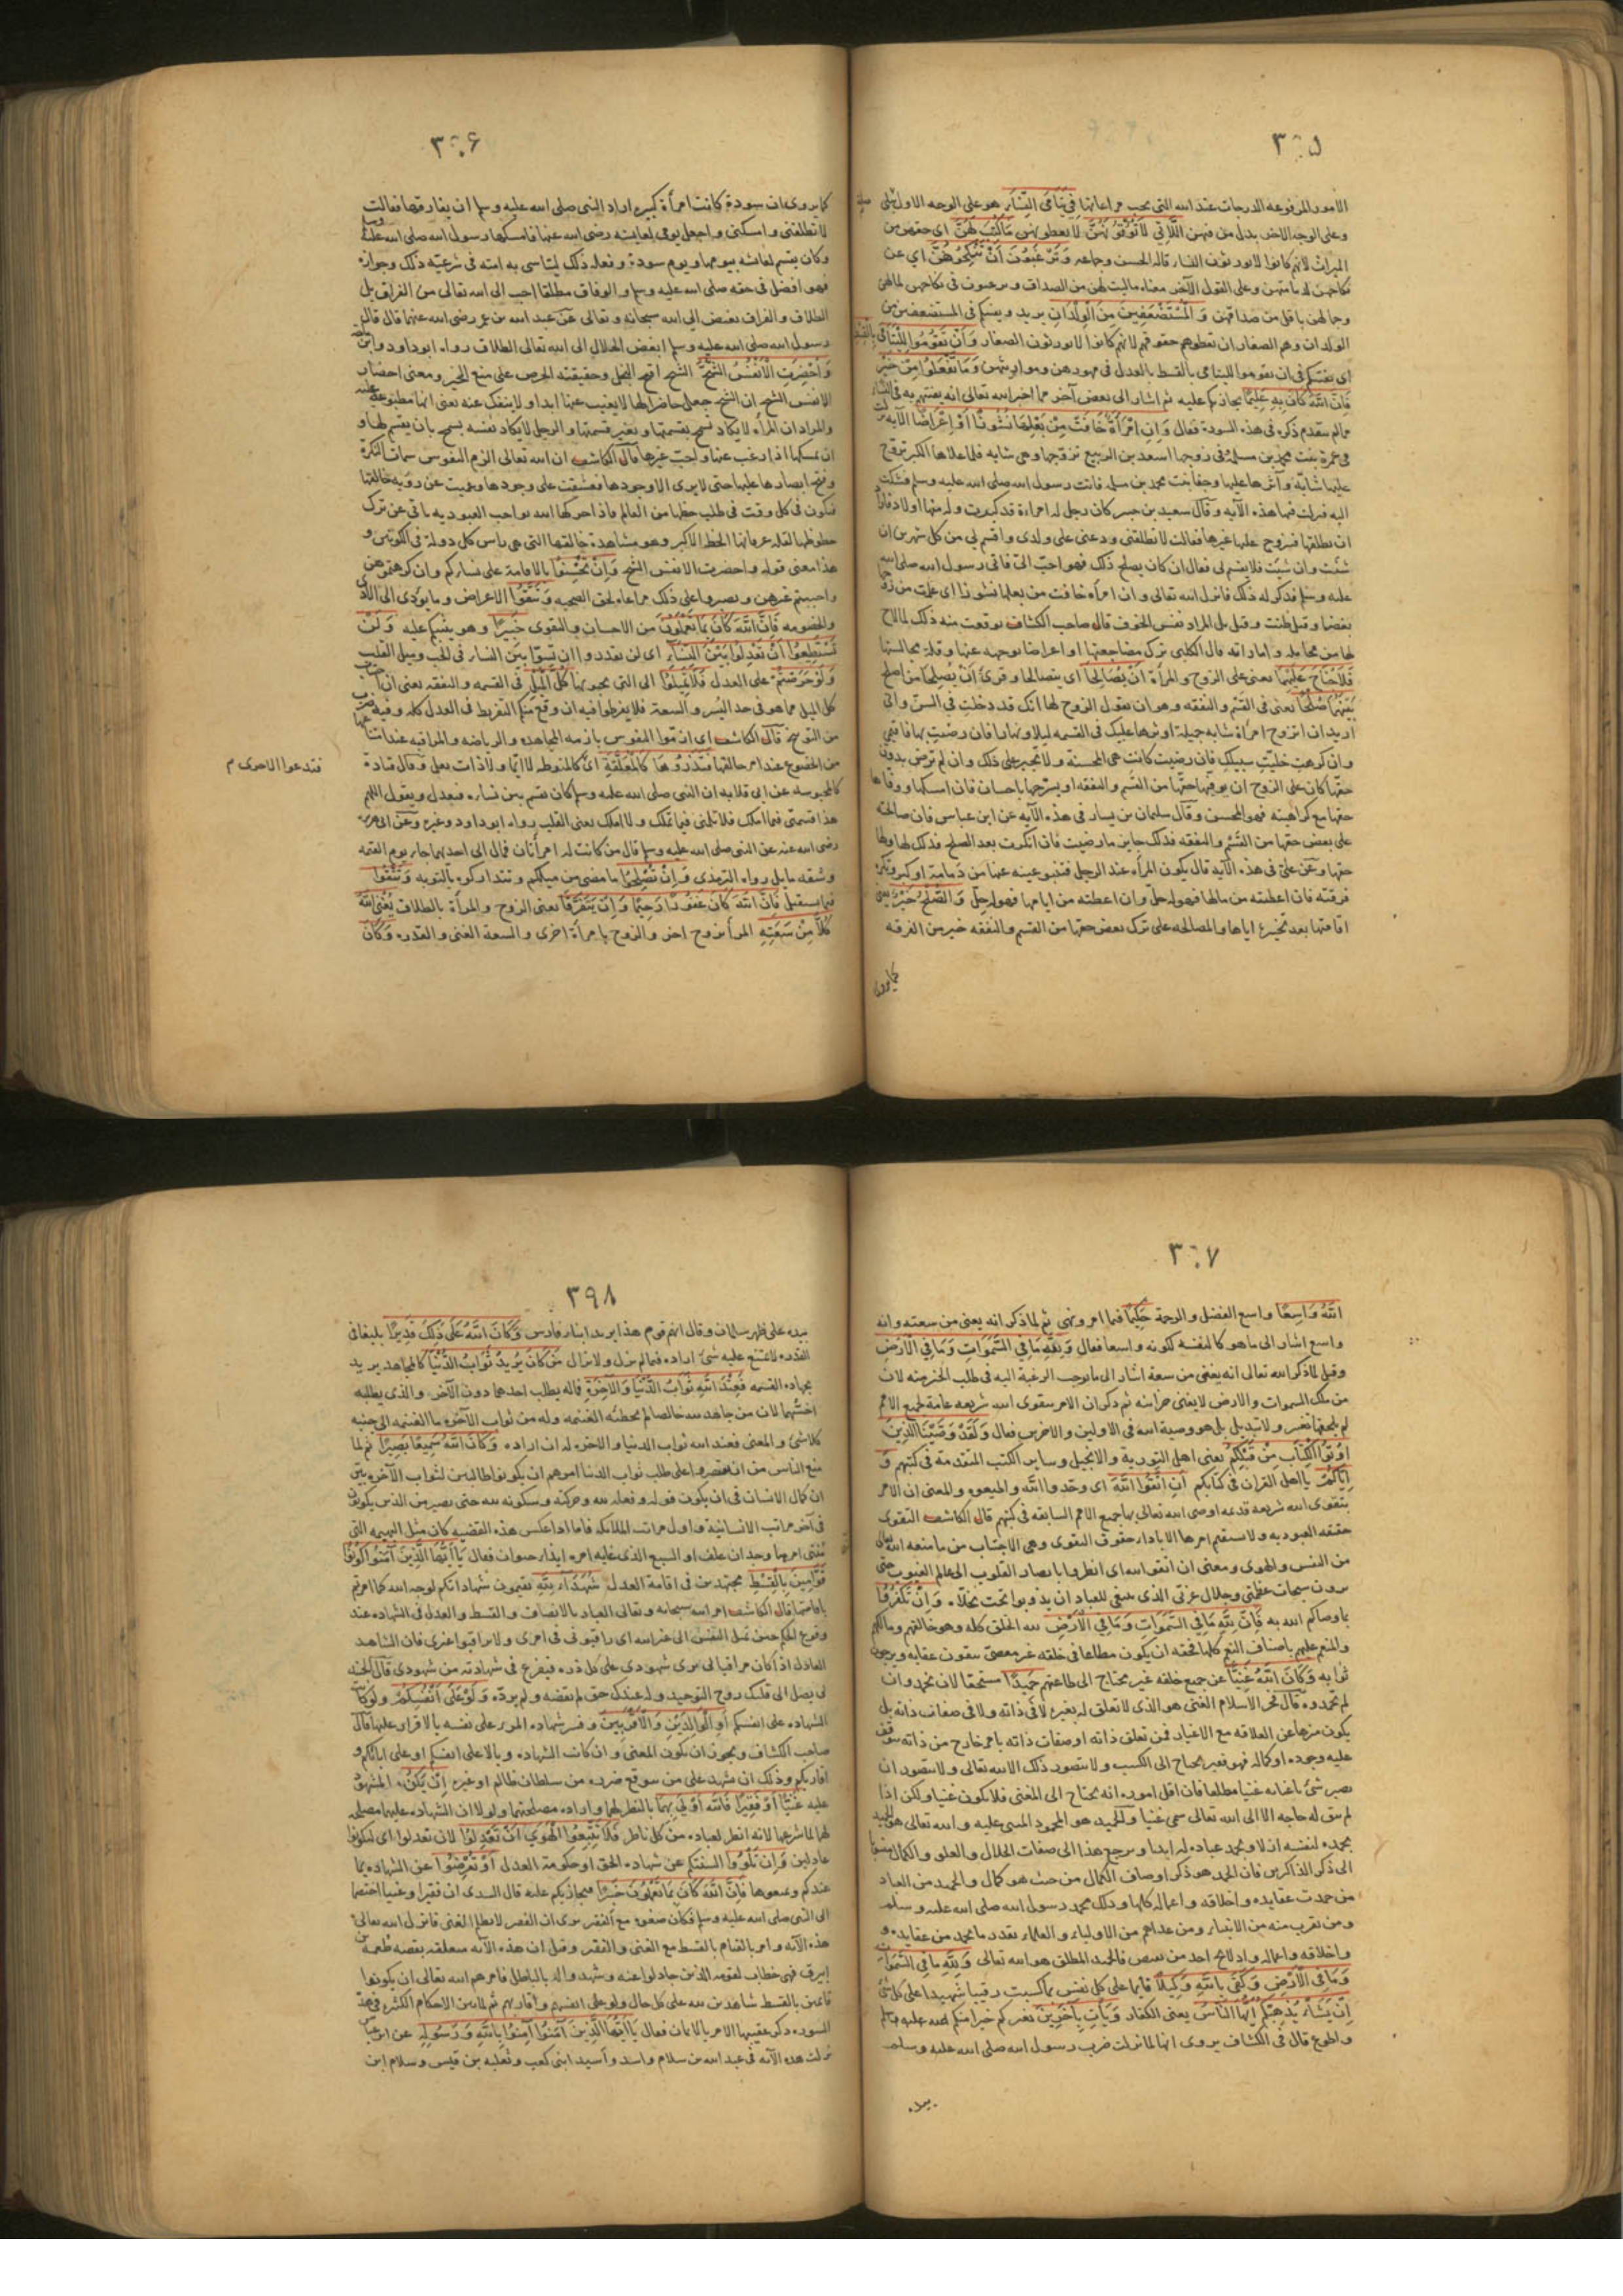 ٣٩٥
الامور المرفوعه الدرجات عند الله التى يجب مراعاتها فِي يَتَامَى النِّسَاءِ هو على الوجه الاول
وعلى الوجه الاخر بدل من فيهن اللَّاتِي لَا تُؤْتُونَهُنَّ لا تعطونهن مَا كُتِبَ لَهُنَّ اى حقهن من
الميراث لانهم كانوا لا يورثون النساء قاله الحسن وجماعه وَتَرْغَبُونَ أَنْ تَنْكِحُوهُنَّ اي عن
نكاحهن وعلى القول الآخر معناه ماليت لهن من الصداق وترغبون فى نكاحهن لمالهن
وجمالهن باقل من صداقهن وَالْمُسْتَضْعَفِينَ مِنَ الْوِلْدَانِ يريد ويفتيكم فى المستضعفين من
الولدان وهم الصغار ان تعطوهم حقوقهم لانهم كانوا لا يورثون الصغار وَأَنْ تَقُومُوا لِلْيَتَامَى بِالْقِسْطِ
اى يفتيكم فى ان تقوموا لليتامى بالقسط بالعدل فى مهورهن ومواريثهن وَمَا تَفْعَلُوا مِنْ خَيْرٍ
فَإِنَّ اللَّهَ كَانَ بِهِ عَلِيمًا يجازيكم عليه ثم اشار الى بعض آخر مما اخبر الله تعالى انه يفتيهم به فى النساء
مما لم يتقدم ذكره فى هذه السورة فقال وَإِنِ امْرَأَةٌ خَافَتْ مِنْ بَعْلِهَا نُشُوزًا أَوْ إِعْرَاضًا الآيه نزلت
فى عمرة بنت محمد بن مسلمة فى زوجها اسعد بن الربيع تزوجها وهى شابه فلما علاها الكبر تزوج
عليها شابة وآثرها عليها وجفا بنت محمد بن مسلمه فاتت رسول الله صلى الله عليه وسلم فشكت
اليه فنزلت فيها هذه الآيه وقال سعيد بن جبير كان رجل له امراءة قد كبرت وله منها اولاد فاراد
ان يطلقها فيتزوج عليها غيرها فقالت لا تطلقنى ودعنى على ولدى واقسم لي من كل شهرين ان
شئت وان شئت فلا تقسم لى فقال ان كان يصلح ذلك فهو احب الىّ فاتى رسول الله صلى الله
عليه وسلم فذكر له ذلك فانزل الله تعالى وان امرأه خافت من بعلها نشوزا اى علمت من زوجها
بغضا وقيل ظنت وقيل بل المراد نفس الخوف قال صاحب الكشاف توقعت منه ذلك لما لاح
لها من مخايله واماراته قال الكلبى ترك مضاجعتها او اعراضا بوجهه عنها وقلة مجالستها
فَلَا جُنَاحَ عَلَيْهِمَا يعنى على الزوج والمرأة أَنْ يَصَّالَحَا اى يتصالحا وقرئ أَنْ يُصْلِحَا من اصلح
بَيْنَهُمَا صُلْحًا يعنى فى القَسم والنفقه وهو ان يقول الزوج لها انك قد دخلتِ فى السن وانى
اريد ان اتزوج امرأة شابه جميلة اوثرها عليك فى القسمه ليلا ونهارا فان رضيتِ بها فاقيمي
وان كرهتِ خليتُ سبيلكِ فان رضيت كانت هى المحسنة ولا تجبر على ذلك وان لم ترض بدون
حقها كان على الزوج ان يوفيها حقها من القسم والنفقه او يسرحها باحسان فان امسكها ووفاها
حقها مع كراهيته فهو المحسن وقال سليمان بن يسار فى هذه الآيه عن ابن عباس فان صالحته
على بعض حقها من القَسْم والنفقه فذلك جايز ما رضيت فان انكرت بعد الصلح فذلك لها ولها
حقها وعن علىّ فى هذه الآيه قال يكون المرأه عند الرجل فتنبو عينه عنها من دَمامة او كبر وتكره
فرقته فان اعطته من مالها فهو له حلّ وان اعطته من ايامها فهو له حلّ وَالصُّلْحُ خَيْرٌ يعنى
اقامتها بعد تخييره اياها والمصالحه على ترك بعض حقها من القسم والنفقه خير من الفرقه
كما يروى
٣٩۶
كما يروى ان سودة كانت امرأة كبيره اراد النبى صلى الله عليه وسلم ان يفارقها فقالت
لا تطلقنى وامسكنى واجعل يومى لعايشه رضى الله عنها فامسكها رسول الله صلى الله عليه وسلم
وكان يقسم لعائشه بيومها ويوم سودة وفعله ذلك ليتاسى به امته فى شرعيّه ذلك وجوازه
فهو افضل فى حقه صلى الله عليه وسلم والوفاق مطلقا احب الى الله تعالى من الفراق بل
الطلاق والفراق بغيض الى الله سبحانه وتعالى عن عبد الله بن عمر رضى الله عنهما قال قال
رسول الله صلى الله عليه وسلم ابغض الحلال الى الله تعالى الطلاق رواه ابو داود وابن ماجه
وَأُحْضِرَتِ الْأَنْفُسُ الشُّحَّ الشح اقبح البخل وحقيقته الحرص على منع الخير ومعنى احضار
الانفس الشح ان الشح جعل حاضرا لها لا يغيب عنها ابدا ولا ينفك عنه يعنى انها مطبوعة عليه
والمراد ان المرأه لا يكاد تسمح بقسمتها وبغير قسمتها والرجل لا يكاد نفسه يسمح بان يقسم لها و
ان يمسكها اذا رغب عنها واحبّ غيرها قال الكاشف ان الله تعالى الزم النفوس سمات النكرة
وفتح ابصارها عليها حتى لا يرى الا وجودها فعشقت على وجودها وعميت عن رؤيه خالقها
فيكون فى كل وقت فى طلب حظها من العالم فاذا حركها الله بواجب العبوديه تأتى عن ترك
حظوظها لقله عرفانها الحظ الاكبر وهو مشاهدة خالقها التى هى راس كل دولة فى الكونين و
هذا معنى قوله واحضرت الانفس الشح وَإِنْ تُحْسِنُوا بالاقامة على نسائكم وان كرهتموهن
واحببتم غيرهن وتصبروا على ذلك مراعاه لحق الصحبه وَتَتَّقُوا الاعراض وما يؤدى الى الاذى
والخصومه فَإِنَّ اللَّهَ كَانَ بِمَا تَعْمَلُونَ من الاحسان والتقوى خَبِيرًا وهو يثيبكم عليه وَلَنْ
تَسْتَطِيعُوا أَنْ تَعْدِلُوا بَيْنَ النِّسَاءِ اى لن تقدروا ان تسوّوا بين النساء فى الحب وميل القلب
وَلَوْ حَرَصْتُمْ على العدل فَلَا تَمِيلُوا الى التى تحبونها كُلَّ الْمَيْلِ فى القسمه والنفقه يعنى ان
كل الميل مما هو فى حد اليُسر والسعة فلا يفرطوا فيه ان وقع منكم التفريط فى العدل كله وفيه ضرب
من التوبيخ قال الكاشف اى ان تتوا النفوس بازمه المجاهده والرياضه والمراقبه عند
من الخضوع عند امر خالقها فَتَذَرُوهَا كَالْمُعَلَّقَةِ اىّ كالمنوطه لا ايّما ولا ذات بعل وقال قتادة
فتدعوا الاخرى م
كالمحبوسه عن ابى قلابه ان النبى صلى الله عليه وسلم كان يقسم بين نسائه فيعدل ويقول اللهم
هذا قسمتى فيما املك فلا تلمنى فيما تملك ولا املك يعنى القلب رواه ابو داود وغيره وعن ابى هريره
رضى الله عنه عن النبى صلى الله عليه وسلم قال من كانت له امرأتان فمال الى احديهما جاء يوم القيمه
وشقه مايل رواه الترمذى وَإِنْ تُصْلِحُوا ما مضى من ميلكم وتتداركوه بالتوبه وَتَتَّقُوا
فيما يستقبل فَإِنَّ اللَّهَ كَانَ غَفُورًا رَحِيمًا وَإِنْ يَتَفَرَّقَا يعنى الزوج والمرأة بالطلاق يُغْنِ اللَّهُ
كُلًّا مِنْ سَعَتِهِ المرأ بزوج اخر والزوج بامرأة اخرى والسعة الغنى والقدره وَكَانَ
٣٩٧
اللَّهُ وَاسِعًا واسع الفضل والرحمة حَكِيمًا فيما امر ونهى ثم لما ذكر انه يغنى من سعته وانه
واسع اشار الى ما هو كالتفسير لكونه واسعا فقال وَلِلَّهِ مَا فِي السَّمَوَاتِ وَمَا فِي الْأَرْضِ
وقيل لما ذكر الله تعالى انه يغنى من سعة اشار الى ما يوجب الرغبة اليه فى طلب الخير منه لان
من ملك السموات والارض لا يفنى خزائنه ثم ذكر ان الامر بتقوى الله شريعه عامة لجميع الامم
لم يلحقها تغير ولا تبديل بل هو وصية الله فى الاولين والاخرين فقال وَلَقَدْ وَصَّيْنَا الَّذِينَ
أُوتُوا الْكِتَابَ مِنْ قَبْلِكُمْ يعنى اهل التورية والانجيل وساير الكتب المتقدمة فى كتبهم وَ
إِيَّاكُمْ يا اهل القران فى كتابكم أَنِ اتَّقُوا اللَّهَ اى وحّدوا الله واطيعوه والمعنى ان الامر
بتقوى الله شريعه قديمه اوصى الله تعالى بها جميع الامم السابقه فى كتبهم قال الكاشف التقوى
حقيقه العبوديه ولا يستقيم امرها الا باداء حقوق التقوى وهى الاجتناب من ما منعه الله تعالى
من النفس والهوى ومعنى ان اتقوا الله اى انظروا بابصار القلوب الى عالم الغيوب حتى
ترون سبحات عظمتى وجلال عزتى الذى ينبغى للعباد ان يذوبوا تحت وَإِنْ تَكْفُرُوا
بما وصاكم الله به فَإِنَّ لِلَّهِ مَا فِي السَّمَوَاتِ وَمَا فِي الْأَرْضِ لله الخلق كله وهو خالقهم ومالكهم
والمنعم عليهم باصناف النعم كلها فحقه ان يكون مطاعا فى خلقه غير معصىّ يتقون عقابه ويرجون
ثوابه وَكَانَ اللَّهُ غَنِيًّا عن جميع خلقه غير محتاج الى طاعتهم حَمِيدًا مستحقا لان يحمد وان
لم تحمدوه قال حجة الاسلام الغنى هو الذى لا تعلق له بغيره لا فى ذاته ولا فى صفات ذاته بل
يكون منزها عن العلاقه مع الاغيار فمن تعلق ذاته او صفات ذاته بامر خارج من ذاته يتوقف
عليه وجوده او كماله فهو فقير يحتاج الى الكسب ولا يتصور ذلك الا لله تعالى ولا يتصور ان
يصير شئ باغنائه غنيا مطلقا فان اقل اموره انه يحتاج الى المغنى فلا يكون غنيا ولكن اذا
لم يبق له حاجه الا الى الله تعالى سمى غنيا والحميد هو المحمود المثنى عليه والله تعالى هو الحميد
بحمده لنفسه ازلا وبحمد عباده له ابدا ويرجع هذا الى صفات الجلال والعلو والكمال منسوبا
الى ذكر الذاكرين فان الحمد هو ذكر اوصاف الكمال من حيث هو كمال والحميد من العباد
من حمدت عقايده واخلاقه واعماله كلها وذلك محمد رسول الله صلى الله عليه وسلم
ومن تقرب منه من الانبياء ومن عداهم من الاولياء والعلماء بقدر ما يحمد من عقايده و
واخلاقه واعماله واذ لا يخ احد من نقص فالحميد المطلق هو الله تعالى وَلِلَّهِ مَا فِي السَّمَوَاتِ
وَمَا فِي الْأَرْضِ وَكَفَى بِاللَّهِ وَكِيلًا قايما على كل نفس بما كسبت رقيبا شهيدا على كل شئ
إِنْ يَشَأْ يُذْهِبْكُمْ أَيُّهَا النَّاسُ يعنى الكفار وَيَأْتِ بِآخَرِينَ بغيركم خيرا منكم
واطوع قال فى الكشاف يروى انها لما نزلت ضرب رسول الله صلى الله عليه وسلم
بيده
٣٩٨
بيده على ظهر سلمان وقال انهم قوم هذا يريد ابناء فارس وَكَانَ اللَّهُ عَلَى ذَلِكَ قَدِيرًا بليغا فى
القدره لا يمتنع عليه شئ اراده فيما لم يزل ولا يزال مَنْ كَانَ يُرِيدُ ثَوَابَ الدُّنْيَا كالمجاهد يريد
بجهاده الغنيمه فَعِنْدَ اللَّهِ ثَوَابُ الدُّنْيَا وَالْآخِرَةِ فاله يطلب احدهما دون الآخر والذى يطلبه
اخسّهما لان من جاهد لله خالصا لم تخطئه الغنيمه وله من ثواب الآخره ما الغنيمه الى جنبه
كلا شئ والمعنى فعند الله ثواب الدنيا والاخره له ان اراده وَكَانَ اللَّهُ سَمِيعًا بَصِيرًا ثم لما
منع الناس من ان يقتصروا على طلب ثواب الدنيا امرهم ان يكونوا طالبين لثواب الآخره بين
ان كمال الانسان فى ان يكون قوله وفعله لله وحركته وسكونه لله حتى يصير من الذين يكونون
فى آخر مراتب الانسانية واول مراتب الملائكه فاما اذا عكس هذه القضيه كان مثل البهيمه التى
منتهى امرها وجدان علف او السبع الذى غايه امره ايذاء حيوان فقال يَا أَيُّهَا الَّذِينَ آمَنُوا كُونُوا
قَوَّامِينَ بِالْقِسْطِ مجتهدين فى اقامة العدل شُهَدَاءَ لِلَّهِ تقيمون شهاداتكم لوجه الله كما امرتم
باقامتها قال الكاشف امر الله سبحانه وتعالى العباد بالانصاف والقسط والعدل فى الشهاده عند
وقوع الحكم حين تميل النفس الى غير الله اى راقبونى فى امرى ولا تراقبوا غيرى فان الشاهد
العادل اذا كان مراقبا لى يرى شهودى على كل ذره فيفزع فى شهادته من شهودى قال الجنيد
لن يصل الى قلبك روح التوحيد وله عندك حق لم تقضه ولم تردّه وَلَوْ عَلَى أَنْفُسِكُمْ ولو كانت
الشهاده على انفسكم أَوِ الْوَالِدَيْنِ وَالْأَقْرَبِينَ وفسر شهاده المرء على نفسه بالاقرار عليها قال
صاحب الكشاف ويجوز ان يكون المعنى وان كانت الشهاده وبالا على انفسكم او على ابائكم و
اقاربكم وذلك ان يشهد على من يتوقع ضرره من سلطان ظالم او غيره إِنْ يَكُنْ المشهود
عليه غَنِيًّا أَوْ فَقِيرًا فَاللَّهُ أَوْلَى بِهِمَا بالنظر لهما واراده مصلحتهما ولولا ان الشهاده عليهما مصلحه
لهما لما شرعها لانه انظر لعباده من كل ناظر فَلَا تَتَّبِعُوا الْهَوَى أَنْ تَعْدِلُوا لان تعدلوا اى لتكونوا
عادلين وَإِنْ تَلْوُوا السنتكم عن شهاده الحق او حكومة العدل أَوْ تُعْرِضُوا عن الشهاده بما
عندكم وتمنعوها فَإِنَّ اللَّهَ كَانَ بِمَا تَعْمَلُونَ خَبِيرًا فيجازيكم عليه قال السدى ان فقيرا وغنيا اختصما
الى النبى صلى الله عليه وسلم فكان صغوه مع الفقير يرى ان الفقير لا يظلم الغنى فانزل الله تعالى
هذه الآيه وامر بالقيام بالقسط مع الغنى والفقير وقيل ان هذه الآيه متعلقه بقصه طعمة بن
ابيرق فهى خطاب لقومه الذين جادلوا عنه وشهدوا له بالباطل فامرهم الله تعالى ان يكونوا
قائمين بالقسط شاهدين لله على كل حال ولو على انفسهم واقاربهم ثم لما بين الاحكام الكثيره فى هذه
السوره ذكر عقيبها الامر بالايمان فقال يَا أَيُّهَا الَّذِينَ آمَنُوا آمِنُوا بِاللَّهِ وَرَسُولِهِ عن ابن عباس
نزلت هذه الآيه فى عبد الله بن سلام واسد وأسيد ابنى كعب وثعلبه بن قيس وسلام ابن